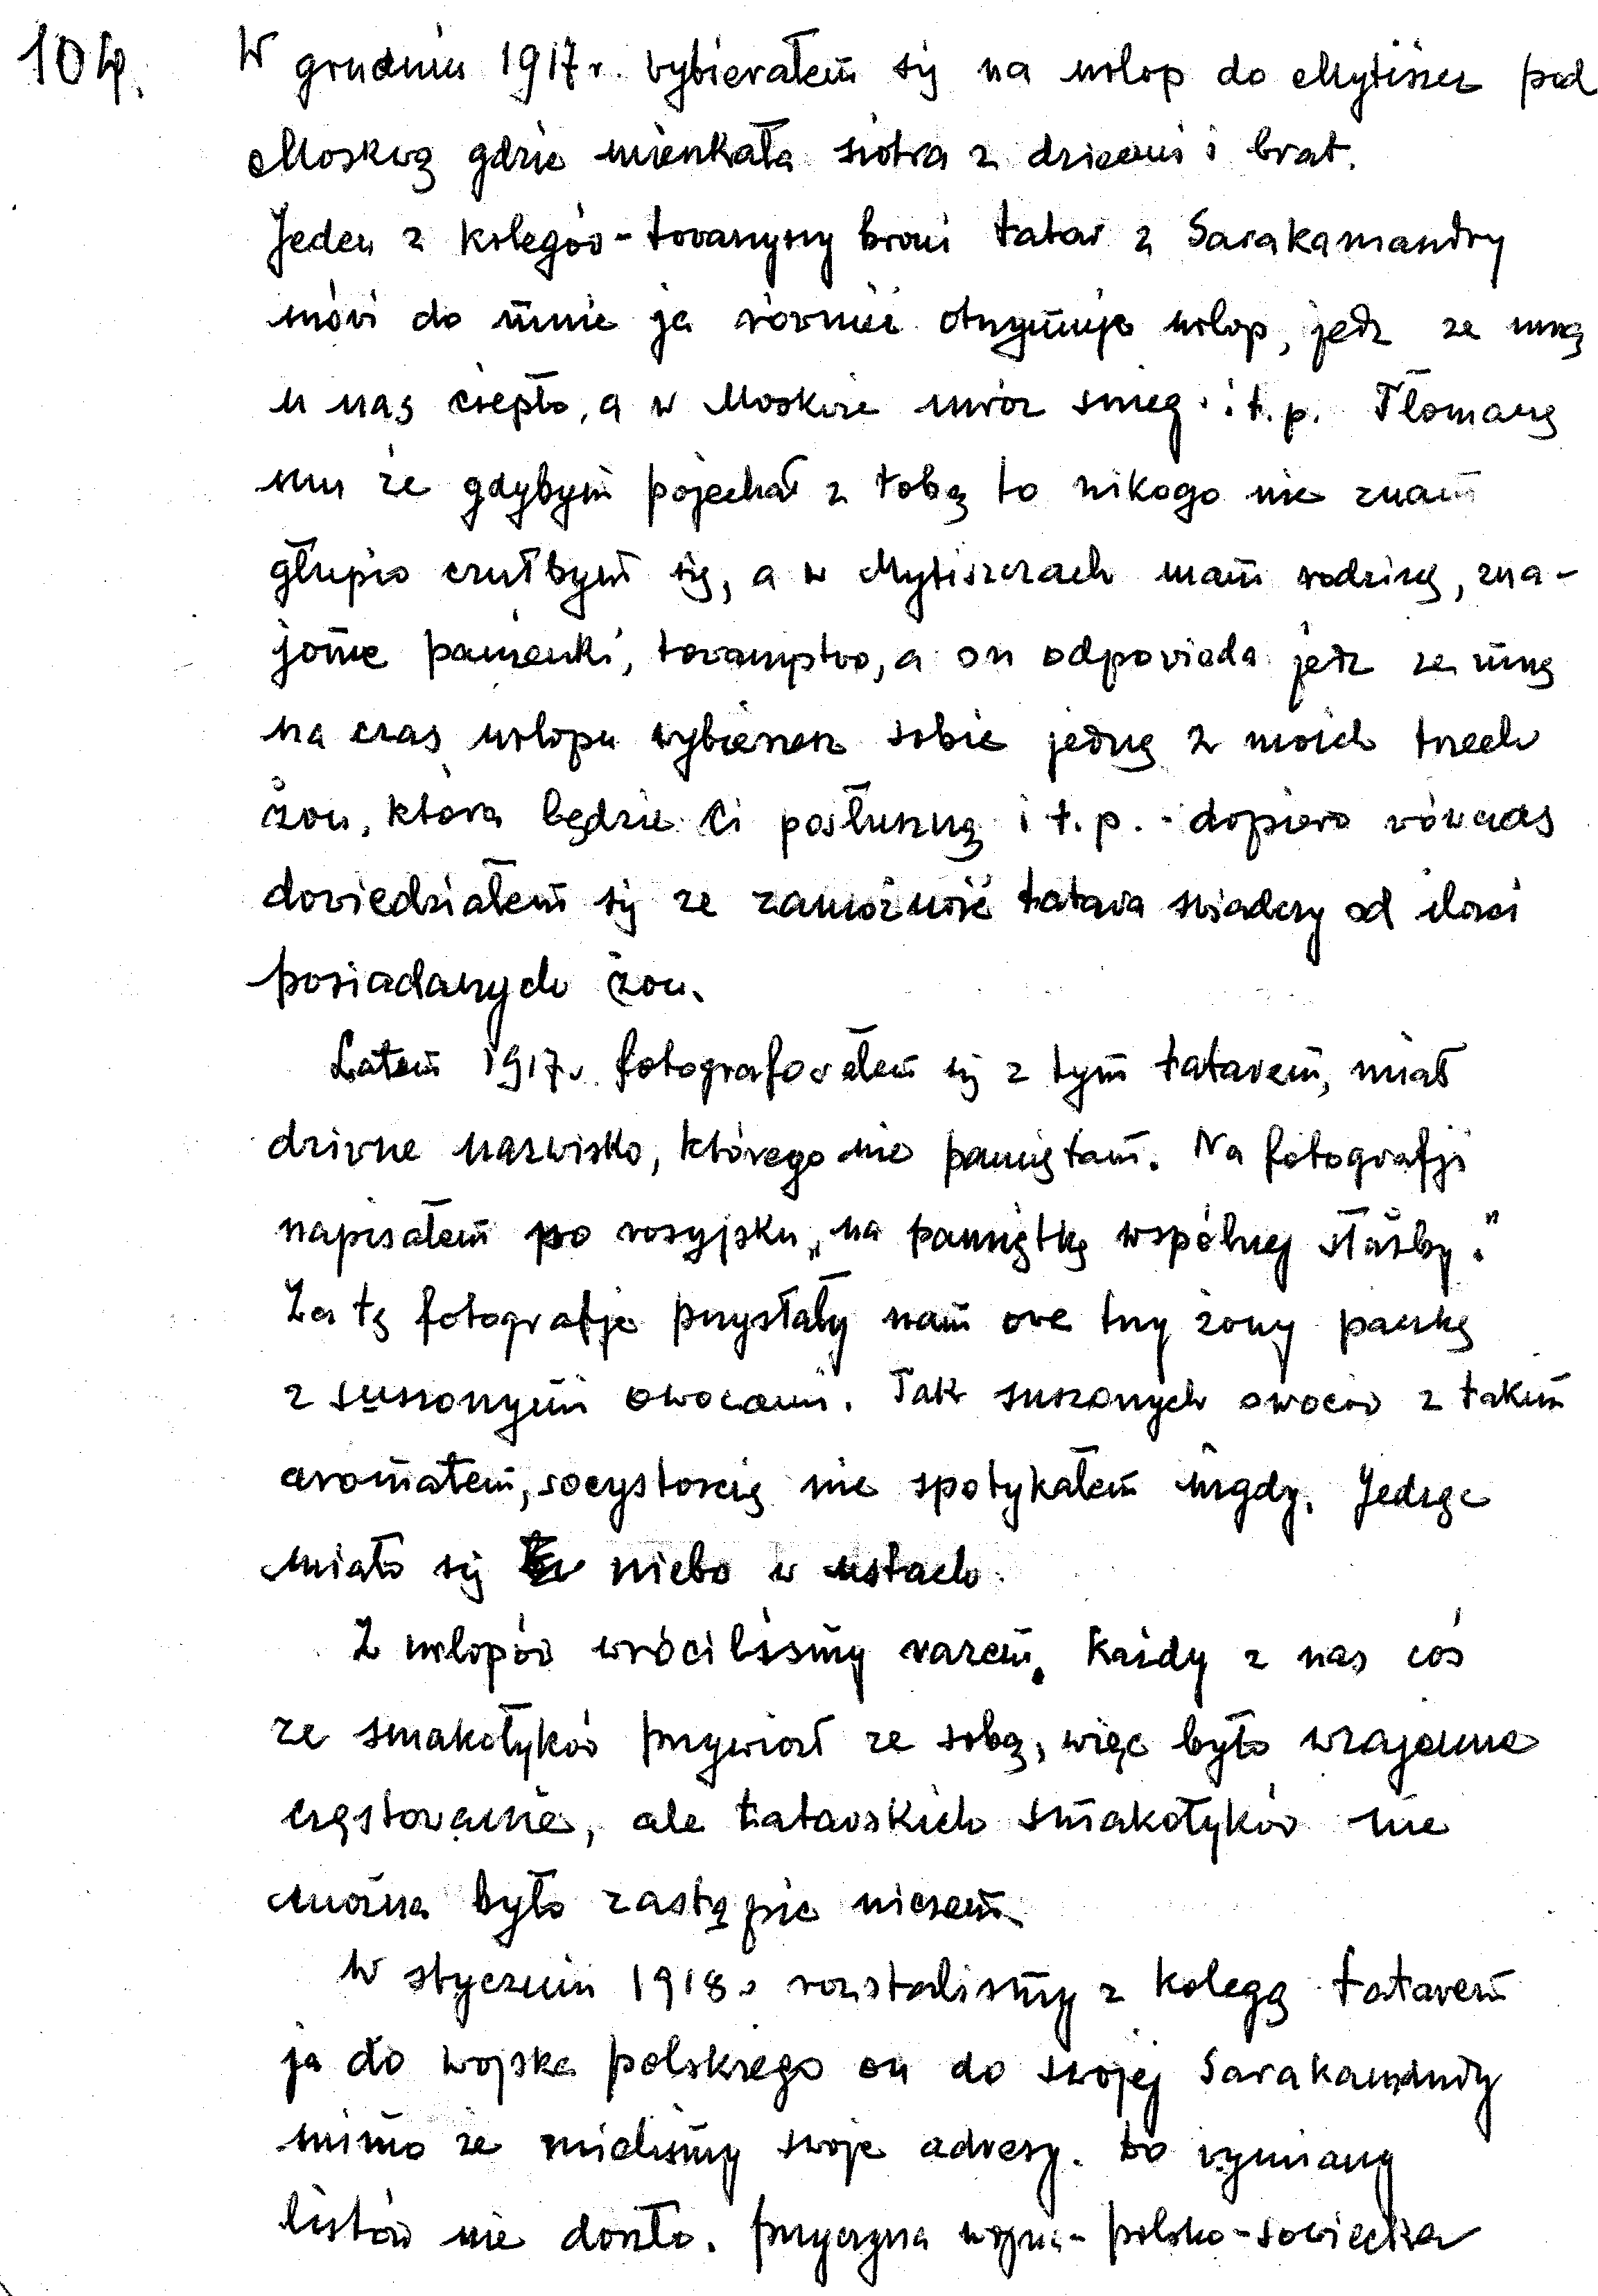 104.
W grudniu 1917 r. wybierałem się na urlop do Mytiszcz pod
Moskwą gdzie mieszkała siostra z dziećmi i brat.
Jeden z kolegów - towarzyszy broni tatar z Sarakamandry
mówi do mnie ja również otrzymuję urlop, jedz ze mną
u nas ciepło, a w Moskwie mróz śnieg i t.p. Tłomaczę
mu że gdybym pojechał z tobą to nikogo nie znam
głupio czułbym się, a w Mytiszczach mam rodzinę, zna-
jome panienki, towarzystwo, a on odpowiada jedz ze mną
na czas urlopu wybierzesz sobie jedną z moich trzech
żon, która będzie Ci posłuszną i t.p. - dopiero wówczas
dowiedziałem się że zamożność tatara świadczy od ilości
posiadanych żon.
Latem 1917 r. fotografowałem się z tym tatarem, miał
dziwne nazwisko, którego nie pamiętam. Na fotografji
napisałem po rosyjsku „na pamiątkę wspólnej służby."
Za tę fotografję przysłały nam owe trzy żony paczkę
z suszonymi owocami. Tak suszonych owoców z takim
aromatem, soczystością nie spotykałem nigdy. Jedząc
miało się niebo w ustach.
Z urlopów wróciliśmy razem. Każdy z nas coś
ze smakołyków przywiózł ze sobą, więc było wzajemne
częstowanie, ale tatarskich smakołyków nie
można było zastąpić niczem.
W styczniu 1918 r rozstaliśmy z kolegą tatarem
ja do wojska polskiego on do swojej Sarakamandry
mimo że mieliśmy swoje adresy. Do wymiany
listów nie doszło. Przyczyna wojna - polsko - sowiecka